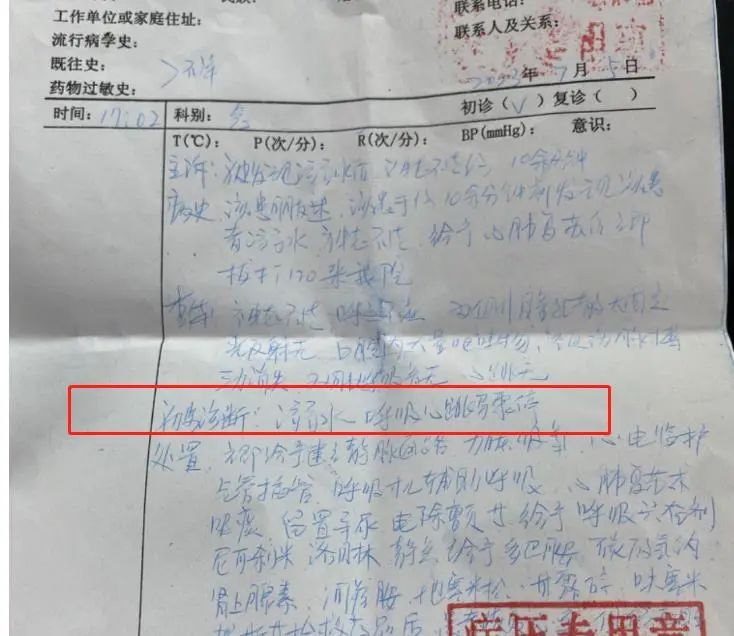 联系电话：
工作单位或家庭住址：
联系人及关系：
流行病学史：
既往史：
不详
药物过敏史：
2023年7月5日
时间：17:02 科别：急 初诊（√）复诊（ ）
T(℃)： P(次/分)： R(次/分)： BP(mmHg)： 意识：
主诉：被发现溺水后 神志不清 10余分钟
病史：该患朋友述，该患于10余分钟前发现该患
者溺水 神志不清，给予心肺复苏后立即
拨打120来我院
查体：神志不清 双侧瞳孔散大固定
光反射无 口腔内大量呕吐物，颈动脉搏
动消失 心跳无
初步诊断：溺水 呼吸心跳骤停
处置：立即给予建立静脉通路 吸氧，心电监护
气管插管，呼吸机辅助呼吸，心肺复苏术
吸痰 留置导尿 电除颤 给予呼吸兴奋剂
尼可刹米 洛贝林 静点 给予多巴胺 碳酸氢钠
肾上腺素，间羟胺，地塞米松，甘露醇，呋塞米